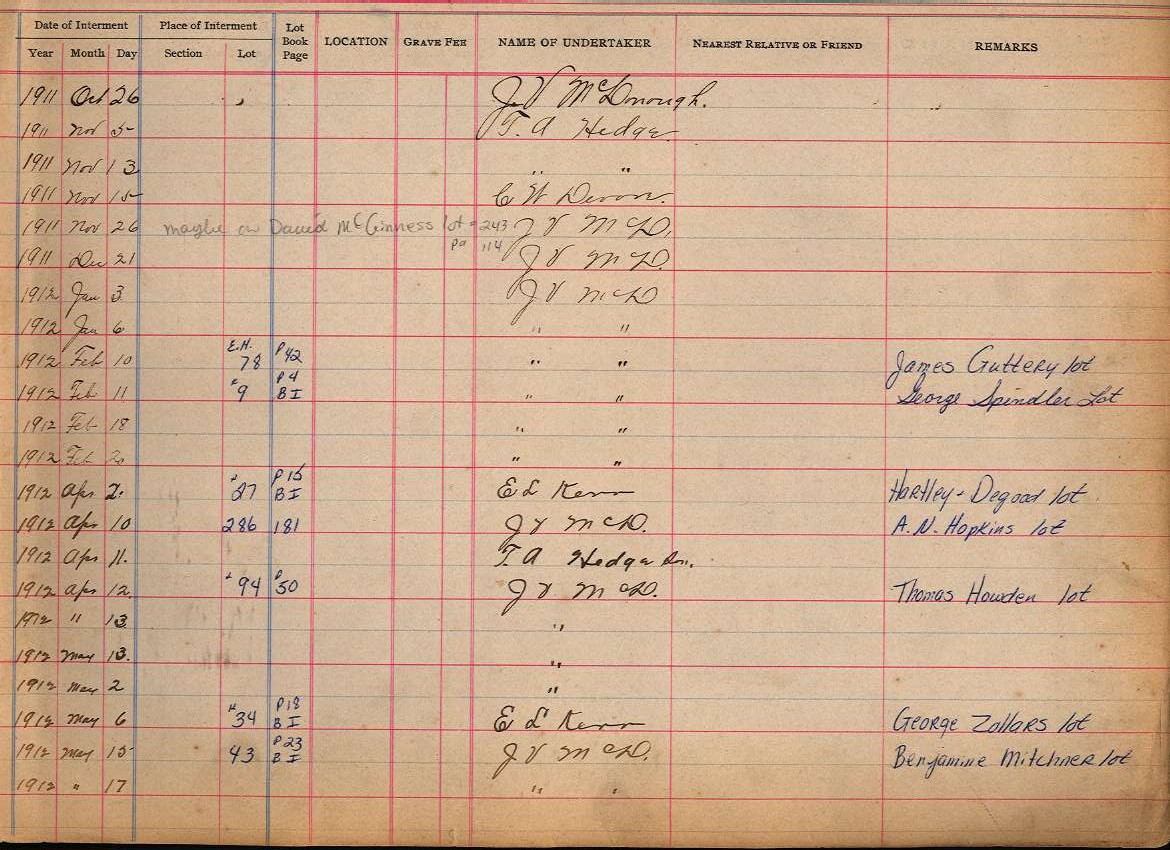 Date of Interment Place of Interment Lot Book Page LOCATION GRAVE FEE NAME OF UNDERTAKER NEAREST RELATIVE OR FRIEND REMARKS
Year Month Day Section Lot
1911 Oct 26 J. V McDonough.
1911 Nov 5 T. A Hedge
1911 Nov 13 " "
1911 Nov 15 C W
1911 Nov 26 maybe on David McGinness lot = 243 J V McD.
pa 114
1911 Dec 21 J V McD.
1912 Jan 3 J V McD
1912 Jan 6 " "
1912 Feb 10 E.H. 78 P 42 " " James Guttery lot
1912 Feb 11 " 9 P 4 B I " " George Spindler Lot
1912 Feb 18 " "
1912 Feb " "
1912 Apr 2. " 27 P 15 B I E L Kerr Hartley - Degood lot
1912 Apr 10 286 181 J V McD. A.N. Hopkins lot
1912 Apr 11. T. A Hedge
1912 Apr 12. " 94 P 50 J V McD. Thomas Howden lot
1912 " 13 "
1912 May 13. "
1912 May 2 "
1912 May 6 " 34 P 18 B I E L Kerr George Zollars lot
1912 May 15 43 P 23 B I J V McD. Benjamine Mitchner lot
1912 " 17 " "